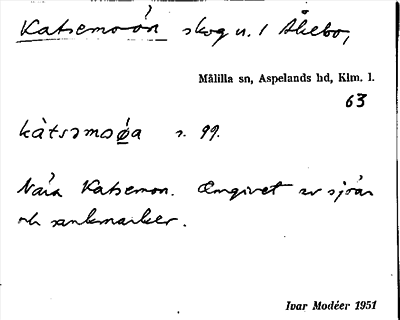 Katsemoön skog u. 1 Åkebo,
Målilla sn, Aspelands hd, Klm. l.
63
kàtsəmoøa s. 99.
Nära Katsemon. Omgivet av sjöar
och sankmarker.
Ivar Modéer 1951